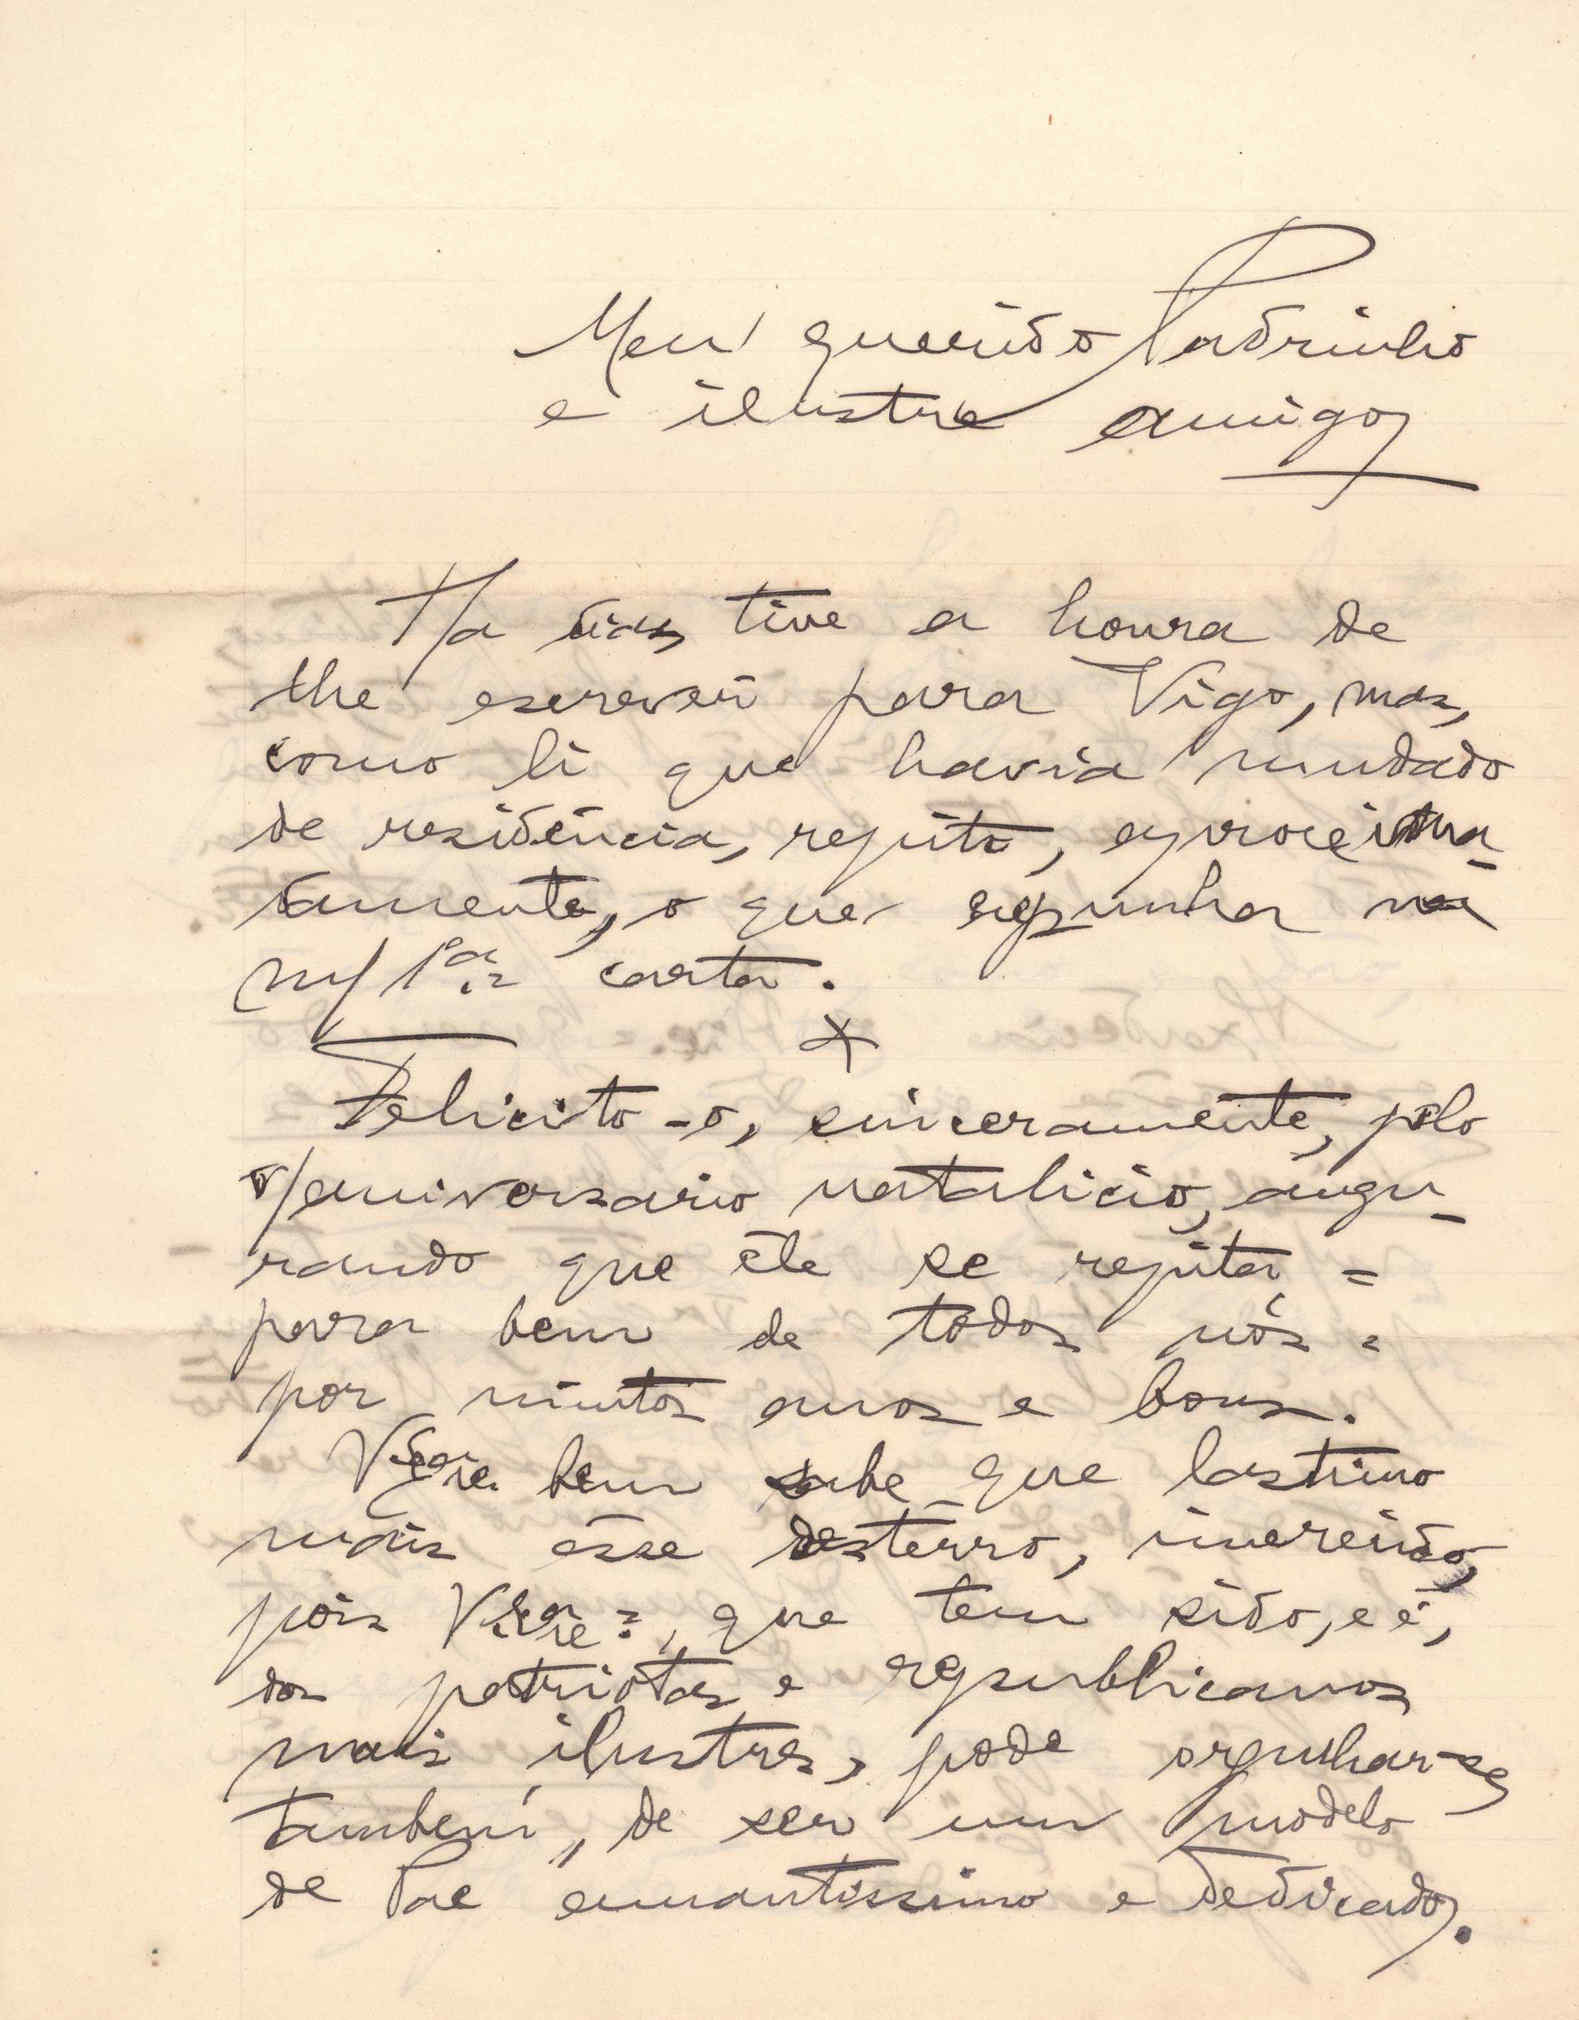 Meu querido Padrinho
e ilustre amigo,
Ha dias, tive a honra de
lhe escrever para Vigo, mas,
como li que havia mudado
de residência, repito, aproxima-
damente, o que expunha na
m/ 1ª carta.
Felicito-o, sinceramente, pelo
s/ aniversario natalicio, augu-
rando que êle se repita =
para bem de todos nós =
por muitos anos e bons.
V. Excia. bem sabe que lastimo
mais êsse destêrro, imerecido,
pois V. Excia., que tem sido, e é,
dos patriotas e republicanos
mais ilustres, pode orgulhar-se
tambem, de ser um modelo
de Pae amantissimo e dedicado.